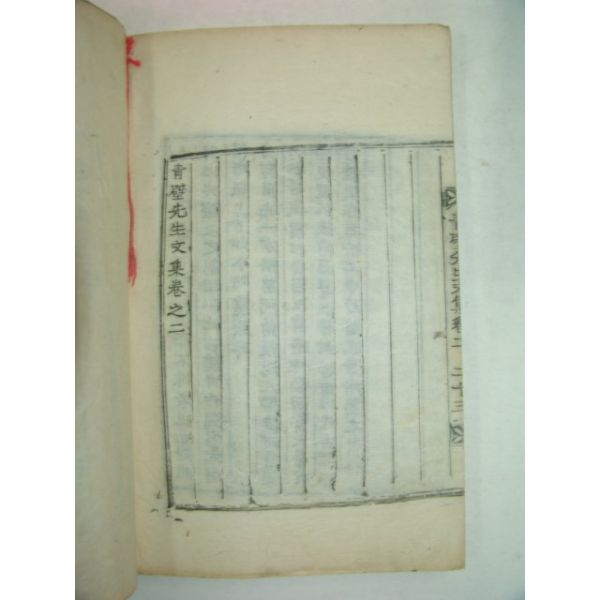 青壁先生文集卷之二
先生文集卷二 二十三